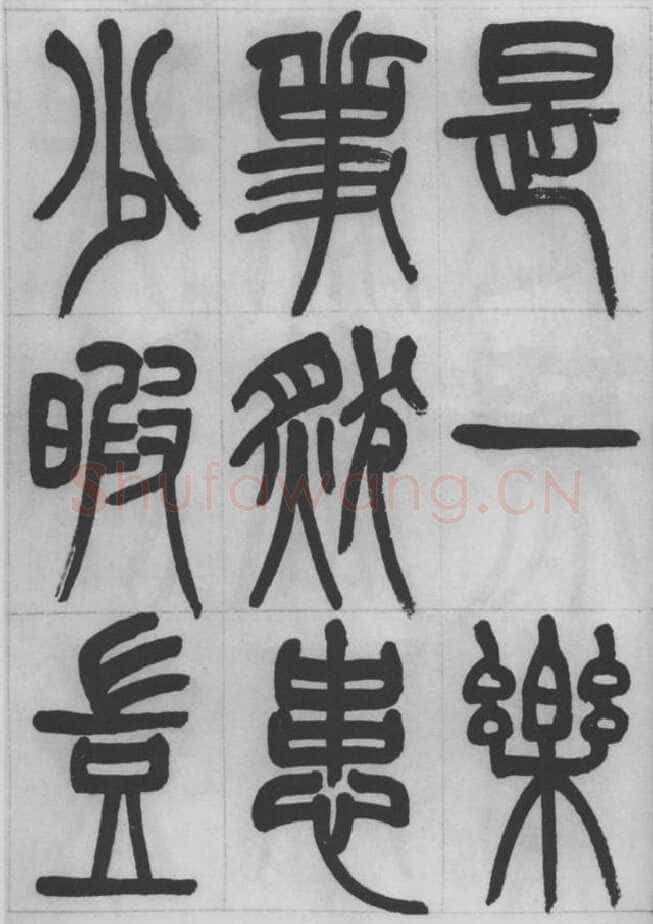 是一樂
事然患
少暇豈
Shufawang.CN